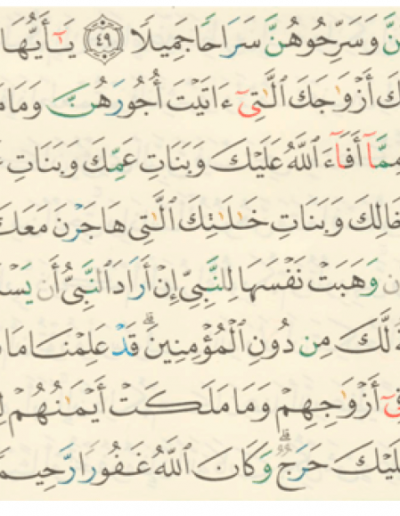 وَسَرِّحُوهُنَّ سَرَاحٗا جَمِيلٗا ٤٩ يَٰٓأَيُّهَا
أَزۡوَٰجَكَ ٱلَّٰتِيٓ ءَاتَيۡتَ أُجُورَهُنَّ وَمَا
مِمَّآ أَفَآءَ ٱللَّهُ عَلَيۡكَ وَبَنَاتِ عَمِّكَ وَبَنَاتِ
خَالِكَ وَبَنَاتِ خَٰلَٰتِكَ ٱلَّٰتِي هَاجَرۡنَ مَعَكَ
وَهَبَتۡ نَفۡسَهَا لِلنَّبِيِّ إِنۡ أَرَادَ ٱلنَّبِيُّ أَن
لَّكَ مِن دُونِ ٱلۡمُؤۡمِنِينَۗ قَدۡ عَلِمۡنَا مَا
فِيٓ أَزۡوَٰجِهِمۡ وَمَا مَلَكَتۡ أَيۡمَٰنُهُمۡ
حَرَجٞۗ وَكَانَ ٱللَّهُ غَفُورٗا رَّحِيمٗا